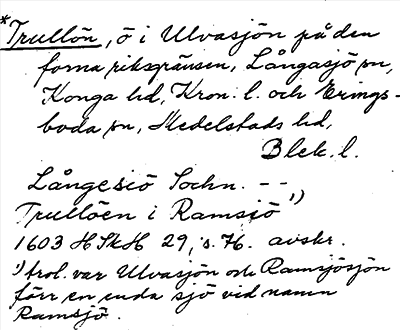 *Trullön, ö i Ulvasjön på den
forna riksgränsen, Långasjö sn,
Konga hd, Kron. l. och Erings-
boda sn, Medelstads hd,
Blek. l.
Långesiö Sochn. --
Trullöen i Ramsjö 1)
1603 HSkH 29, s. 76. avskr.
1) trol. var Ulvasjön och Ramsjösjön
förr en enda sjö vid namn
Ramsjö.